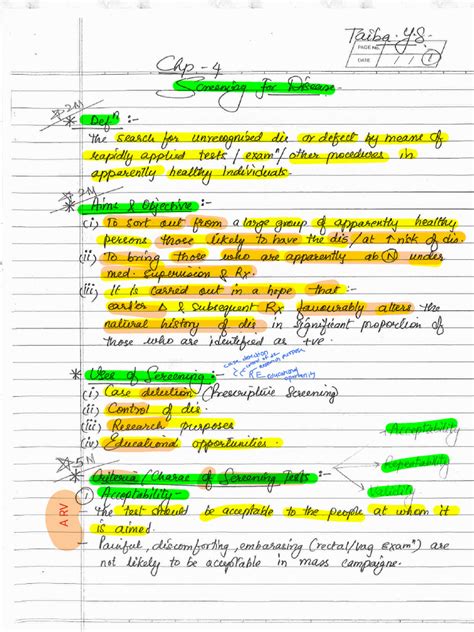 Taiba. Y.S.
PAGE No.
DATE / / 1
Chp. - 4
Screening For Disease.
2M
* Defⁿ :-
The search for unrecognised dis or defect by means of
rapidly applied tests / examⁿ / other procedures in
apparently healthy Individuals.
2M
* Aims & Objective :-
(i) To sort out from a large group of apparently healthy
persons those likely to have the dis / at ↑ risk of dis.
(ii) To bring those who are apparently ab(N) under
med. supervision & Rx.
(iii) It is carried out in a hope that :
earlier Δ & subsequent Rx favourably alters the
natural history of dis in significant proportion of
those who are identified as +ve.
case detection
control of dis
research purpose
RE educating
opportunity
* Uses of Screening :-
(i) Case detection (Prescriptive Screening)
(ii) Control of dis.
(iii) Research purposes
(iv) Educational opportunities.
Acceptability
5M
* Criteria / Charac of Screening Tests :-
Repeatability
Validity
① Acceptability -
ARV
- The test should be acceptable to the people at whom it
is aimed.
- Painful, discomforting, embarasing (rectal/vag Examⁿ) are
not likely to be acceptable in mass campaigne.